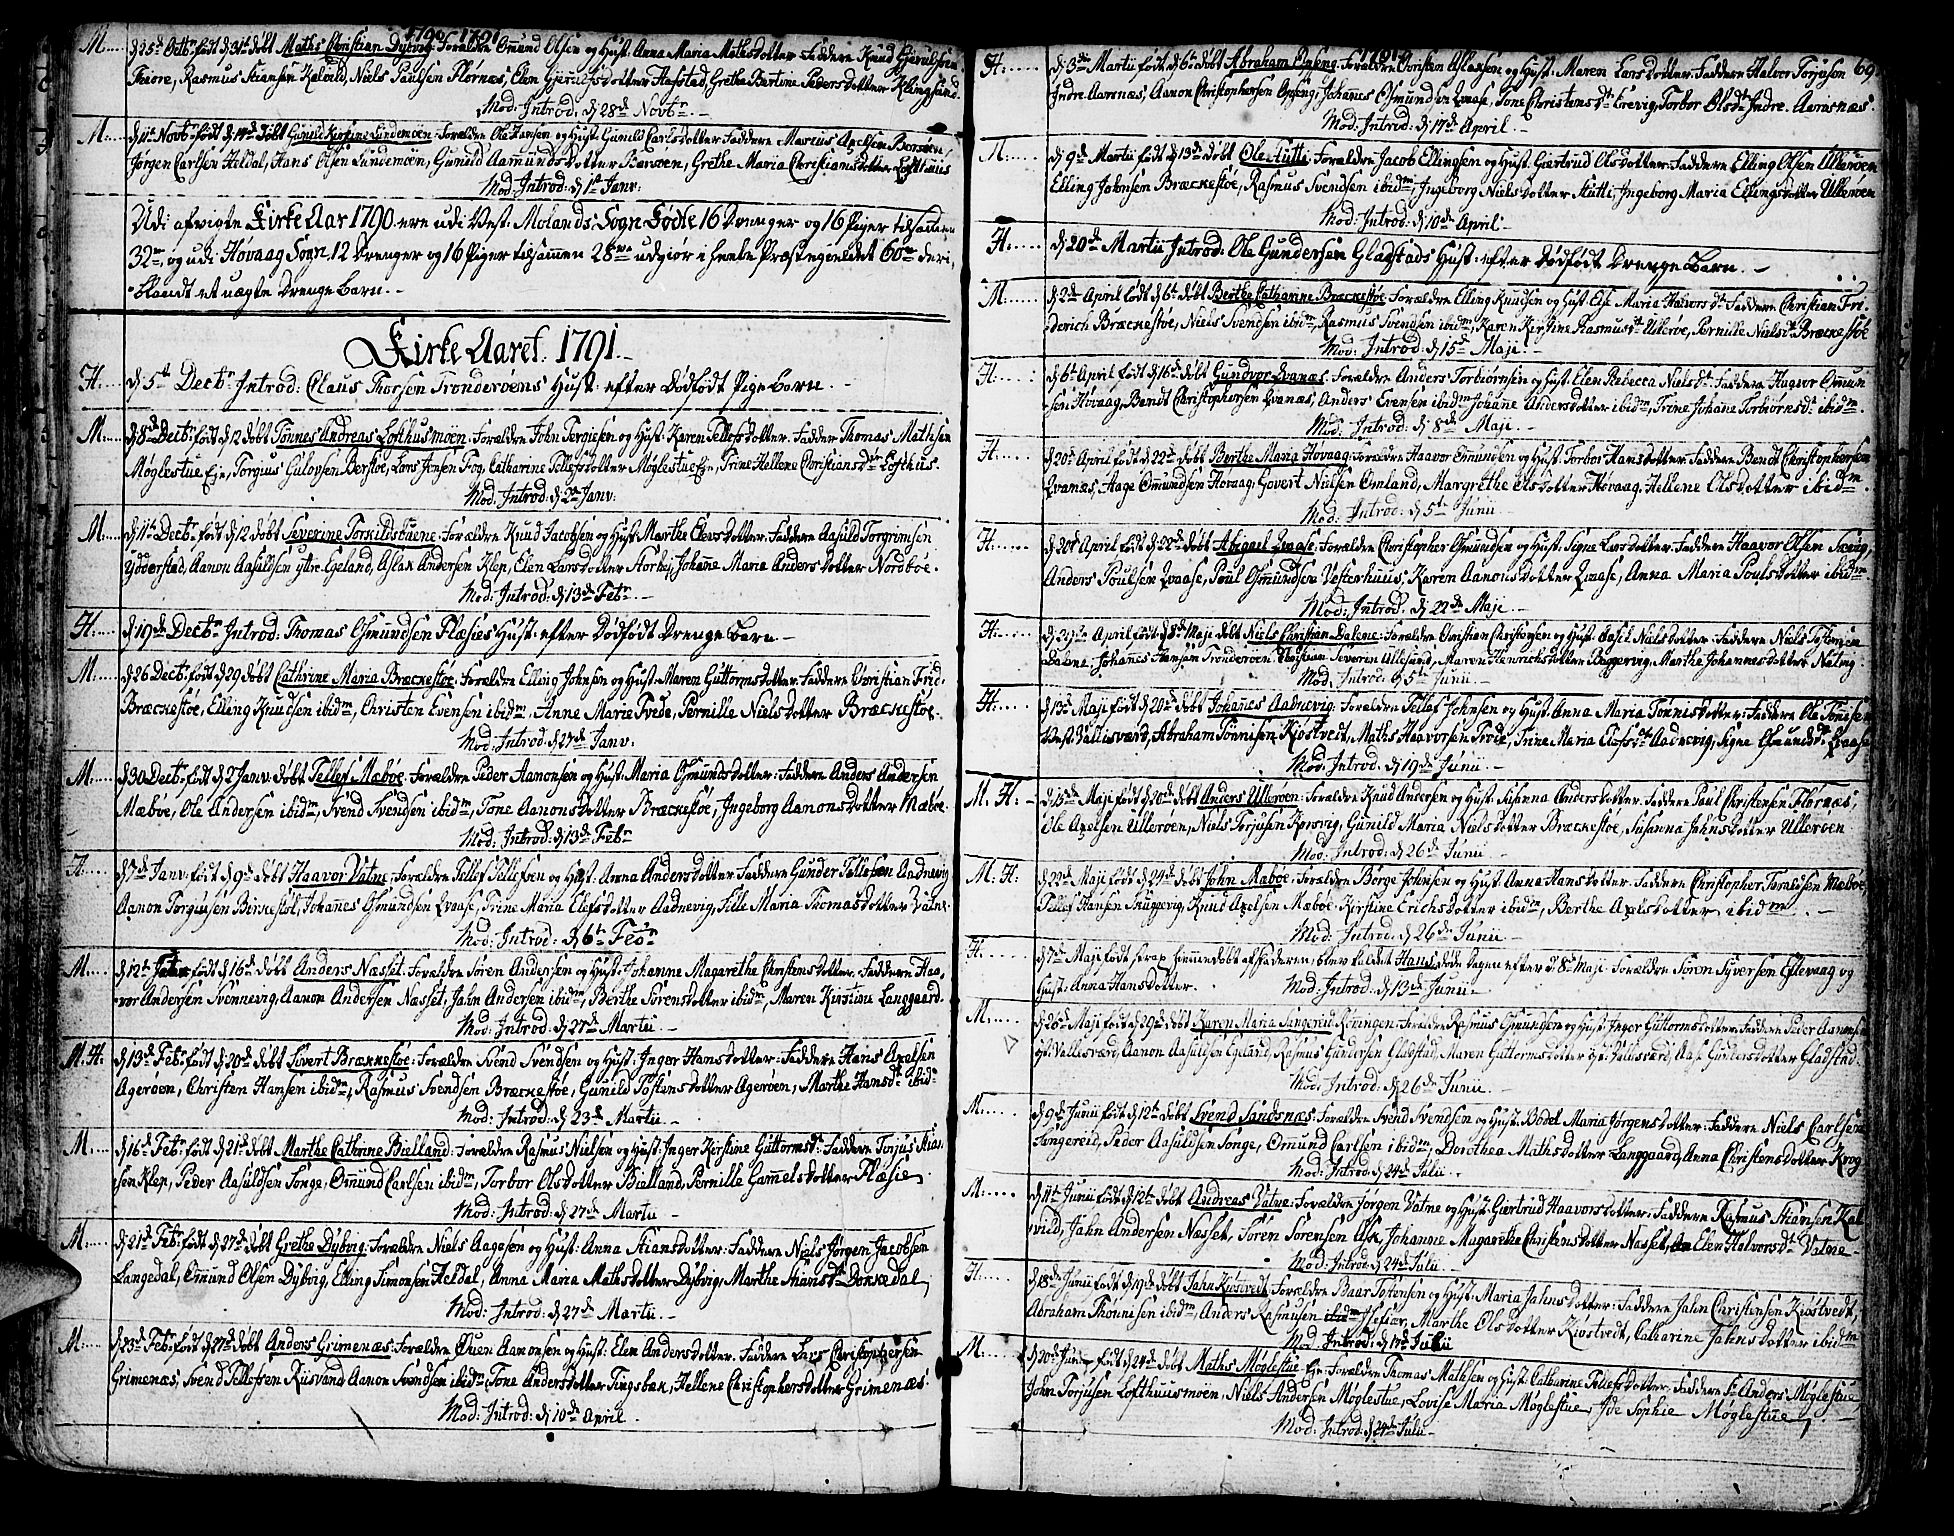 1790 1791
M. d 25d Octbr født d 31d døbt Maths Christian Dybvig: Forældre Omund Olsen og Hust: Anna Maria Mathsdotter Faddere Knud Gjerulfsen
Thore, Rasmus Stiansen Kalvild, Niels Paulsen Flørnæs, Elen Gjerulfsdotter Hafstad, Grethe Bertine Pedersdotter Klingsund.
Mod: Introd: d 28d Novbr
M. d 11t Novbr født d 14d døbt Gunild Kirstine Lindemoen: Forældre Ole Hansen og Hust: Gunild Carlsdotter Faddere Marcus Axelsen Borøen,
Jørgen Carlsen Heldal, Hans Olsen Lundemoen, Gunild Aamundsdotter Borøen, Grethe Maria Christiansdotter Lofthuus
Mod: Introd: d 1t Janv:
Udi afvigte Kirke Aar 1790 ere udi Vest: Molands Sogn Fødde 16 Drenger og 16 Piger tilsammen
32m, og udi Høvaag Sogn 12 Drenger og 16 Piger tilsammen 28m udgiør i heele Præstegieldet 60m deri
blandt et uægte Drenge Barn.
Kirke Aaret 1791.
H. d 5t Decbr Introd: Claus Thorsen Tronderøens Hust: efter Dødfødt Pige Barn.
M. d 8d Decbr født d 12 døbt Tønnes Andreas Lofthusmoen: Forældre John Tergiesen og Hust: Karen Tellefsdotter. Fadder Thomas Mathsen
Møglestue Eje, Torgius Gulovsen Berstøe, Lars Jensen Fog, Catharine Tellefsdotter Møglestue Eje, Trine Hellene Christiansdtr Lofthus.
Mod: Introd: d 2n Janv:
M. d 11t Decbr født d 12 døbt Severine Torkildsbuene: Forældre Knud Jacobsen og Hust: Marthe Olevsdotter Faddere Aasuld Torgrimsen
Ydderstad, Aanon Aasuldsen ytre Egeland, Aslak Andersen Klep, Elen Larsdotter Storky, Johanne Maria Andersdotter Nordbøe.
Mod: Introd: d 13d Febr
H. d 19d Decbr Introd: Thomas Osmundsen Flæsies Hust: efter Dødfødt Drenge Barn
M. d 26 Decbr født d 29 døbt Cathrine Maria Bræckestøe: Forældre Elling Johnsen og Hust: Maren Guttormsdotter. Faddere Christian Frid:
Bræckestøe, Elling Knudsen ibidm, Christen Evensen ibidm, Anne Marie Tvede, Pernille Nielsdotter Bræckestøe.
Mod: Introd: d 27d Janv:
M. d 30 Decbr født d 2 Janv: døbt Tellef Mæbøe: Forældre Peder Aanonsen og Hust: Maria Osmundsdotter: Faddere Anders Andersen
Mæbøe, Ole Andersen ibidm, Svend Svendsen ibidm, Tone Aanonsdotter Bræckestøe, Ingeborg Aamonsdotter Mæbøe.
Mod: Introd: d 13d Febr
H. d 7d Janv: født d 9d døbt Haavor Vatne: Forældre Tellef Tellefsen og Hust: Anna Andersdotter: Faddere Gunder Tellefsen Aadnevig
Aanon Torgiusen Birkestøl, Johannes Osmundsen Qvaase, Trine Maria Elefsdotter Aadnevig, Sille Maria Thomasdotter Vatne.
Mod: Introd: d 6t Febr
M. d 12t født d 16d døbt Anders Næsset: Forældre Søren Andersen og Hust: Johanne Magarethe Christensdotter. Faddere Haa-
vor Andersen Svennevig, Aanon Andersen Næsset, Jahn Andersen ibidm, Berthe Sørensdotter ibidm, Maren Kirstine Langgaard.
Mod: Introd: d 27d Martii.
M. H. d 13d Febr født d 20d døbt Sivert Brækkestøe: Forældre Svend Svendsen og Hust: Inger Hansdotter: Faddere Hans Axelsen
Agerøen, Christen Hansen ibidm, Rasmus Svendsen Bræckestøe, Gunild Tostensdotter Agerøen, Marthe Hansdt ibidm
Mod: Introd: d 23d Martii.
M. d 16d Febr født d 21d døbt Marthe Cathrine Bielland: Forældre Rasmus Nielsen og Hust: Inger Kirstine Guttormsd: Faddere Torjus Mas-
sen Klep, Peder Aasuldsen Songe, Omund Carlsen ibidm, Torbor Olsdotter Bielland, Pernille Gammelsdotter Flæsie
Mod: Introd: d 27d Martii
M. d 21d Febr født d 27d døbt Grethe Dybvig: Forældre Niels Aagesen og Hust: Anna Stiansdotter: Faddere Niels Jørgen Jacobsen
Langedal, Omund Olsen Dybvig, Elling Simonsen Heldal, Anna Maria Mathsdotter Dybvig, Marthe Stiansdt Dokkedal
Mod: Introd: d 27d Martii
M. d 23d Febr født d 27d døbt Anders Grimenæs: Forældre Ouen Aanonsen og Hust: Elen Andersdotter. Faddere Lars Christophersen
Grimenæs, Svend Tellefsen Riisvand Aanon Svendsen ibidm Tone Andersdotter Tingsbæk, Hellene Christophersdotter Grimenæs.
Mod: Introd: d 10d April
1791 69
H. d 3d Martii født d 6t døbt Abraham Omeng: Forældre Torsten Aslaxsen og Hust: Maren Larsdotter: Faddere Halvor Torjusen
Indre Aarsnæs, Aanon Christophersen Omeng, Johannes Osmundsen Qvaase, Tone Christensdt Erevig, Torbor Olsdt Indre Aarsnæs.
Mod: Introd: d 17d April
M. d 9d Martii født d 13d døbt Ole Stutti: Forældre Jacob Ellingsen og Hust: Giertrud Olsdotter: Faddere Elling Olsen Ulleroen
Elling Johnsen Bræckestøe, Rasmus Svendsen ibidm, Ingeborg Nielsdotter Stutti, Ingeborg Maria Ellingsdotter Ulleroen
Mod: Introd: d 10d April
H. d 20d Martii Introd: Ole Gundersen Gladstads Hust: efter Dødfødt Drenge Barn.
M. d 2d April født d 6t døbt Berthe Catharine Bræckestøe: Forældre Elling Knudsen og Hust: Else Maria Halvorsdt: Faddere Christian Fri-
derich Bræckestøe, Niels Svendsen ibidm, Rasmus Svendsen ibidm, Karen Kirstine Rasmusdt Ulleroe, Pernille Nielsdt Bræckestøe
Mod: Introd: d 15d Maji.
H. d 6t April født d 16d døbt Gundvor Qvanæs: Forældre Anders Torbiørnsen og Hust: Elen Rebecca Nielsdt: Faddere Haavor Omun
sen Høvaag, Bendt Christophersen Qvanæs, Anders Evensen ibidm Johane Andersdotter ibidm, Trine Johana Torbiørnsdt ibidm.
Mod: Introd: d 8d Maji.
H. d 20d April født d 22d døbt Berthe Maria Høvaag: Forældre Haavor Omundsen og Hust: Torbor Hansdotter: Faddere Bendt Christophersen
Qvanæs, Aage Omundsen Høvaag, Govert Nielsen Omland, Margrethe Olsdotter Høvaag, Hellene Olsdotter ibidm.
Mod: Introd: d 5t Junii
H. d 20d April født d 22d døbt Abigael Qvaase: Forældre Christopher Osmundsen og Hust: Signe Larsdotter: Faddere Haavor Olsen Sævig,
Anders Poulsen Qvaase, Poul Osmundsen Vesterhuus, Karen Aanonsdotter Qvaase, Anna Maria Poulsdotter ibidm.
Mod: Introd: d 22d Maji
H. d 29d April født d 8d Maji døbt Niels Christian Dalene: Forældre Christian Christensen og Hust: Aasel Nielsdotter: Faddere Niels Tostensen
Dalene, Johanes Hansen Tronderøen, Christian Severin Ullesund, Maren Henrichsdotter Baggervig, Marthe Johannesdotter Næbvig
Mod: Introd: d 5t Junii
H. d 13d Maji født d 20d døbt Johanes Aadnevig: Forældre Tellef Johnsen og Hust: Anna Maria Tønnisdotter: Faddere Ole Tønisen
Vest: Vallesværd, Abraham Tønnisen Kiøstvedt, Maths Haavorsen Trøde, Trine Maria Elefsdt Aadnevig, Signe Osmundsdt Qvaase
Mod: Introd: d 19d Junii
M. H. d 15d Maji født d 20d døbt Anders Ulleroen: Forældre Knud Andersen og Hust: Susanna Andersdotter. Faddere Paul Christensen Flørnæs,
Ole Axelsen Ulleroen, Niels Torjusen Korsvig, Gunild Maria Nielsdotter Bræckestøe, Susanna Jahnsdotter Ulleroen
Mod: Introd: d 26d Junii
M. H. d 22d Maji født d 24d døbt John Mæbøe: Forældre Børge Johnsen og Hust: Anna Hansdotter: Faddere Christopher Taraldsen Mæbøe,
Tellef Hansen Skuggevig, Knud Axelsen Mæbøe Kirstine Erichsdotter ibidm, Berthe Axelsdotter ibidm.
Mod: Introd: d 26d Junii
H. d 7d Maji født, strax hiemmedøbt af Faderen, blev kaldet Hans, døde Dagen efter d 8d Maji. Forældre Søren Syversen Eglevaag og
Hust: Anna Hansdotter. Mod: Introd: d 13d Junii
M. d 26d Maji født d 29d døbt Karen Maria Sangereid Rønningen: Forældre Rasmus Osmundsen og Hust: Inger Guttormsdotter: Faddere Peder Aanonsen
øst: Vallesværd, Aanon Aasuldsen Egeland, Rasmus Gundersen Gladstad, Maren Guttormsdotter øst: Vallesværd, Aase Gundersdotter Gladstad.
Mod: Introd: d 26d Junii.
M. d 9d Junii født d 12t døbt Svend Sandsnæs: Forældre Svend Svendsen og Hust: Bodel Maria Jørgensdotter: Faddere Niels Carlsen
Sangereid, Peder Aasuldsen Songe, Omund Carlsen ibidm, Dorothea Mathsdotter Langgaard, Anna Christensdotter Krog
Mod: Introd: d 24d Julii.
M. d 11t Junii født d 12t døbt Andreas Vatne: Forældre Jørgen Vatne og Hust: Giertrud Haavorsdotter: Faddere Rasmus Stiansen Kal
vild, Jahn Andersen Næsset, Søren Sørensen Ask, Johanne Magarethe Christensdotter Næsset, Elen Halvorsdt Vatne
Mod: Introd: d 24d Julii.
H. d 18d Junii født d 19d døbt Jahn Kiøstvedt: Forældre Baar Torensen og Hust: Maria Jahnsdotter: Faddere Jahn Christensen Kiøstvedt,
Abraham Thønnisen ibidm, Anders Rasmusen Isefiær, Marthe Olsdotter Kiøstvedt, Catharine Jahnsdotter ibidm
Mod: Introd: d 17d Julii
M. d 20d Junii født d 24d døbt Maths Møglestue Eje: Forældre Thomas Mathsen og Hust: Catharine Tellefsdotter: Faddere Sr Anders Møglestue
John Torjusen Lofthuusmoen, Niels Andersen Møglestue, Lovise Maria Møglestue, Ide Sophie Møglestue
Mod: Introd: d 24d Julii